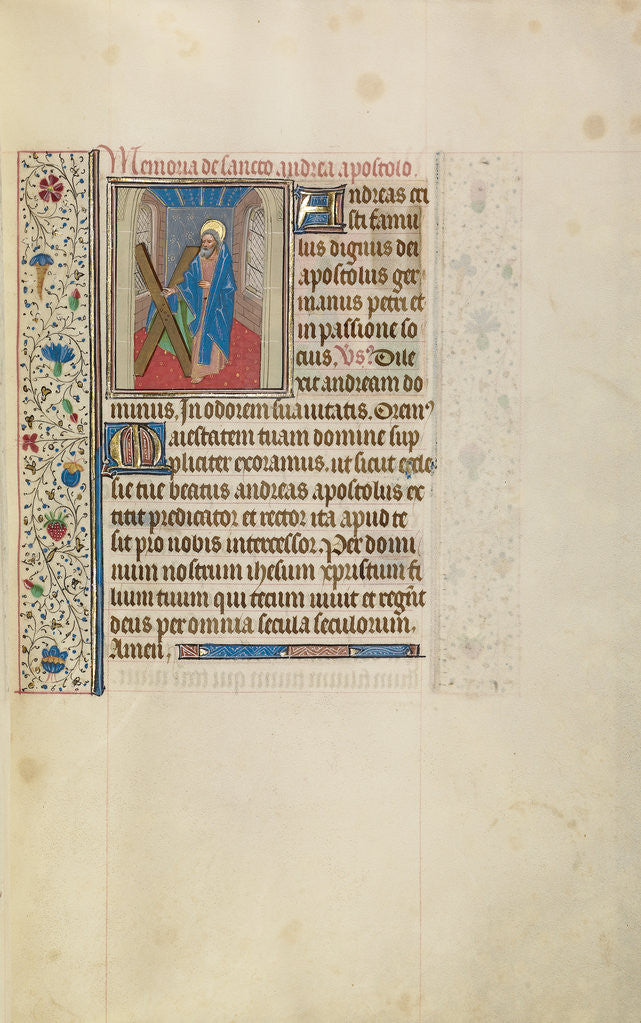 Memoria de sancto andrea apostolo.
Andreas cri
sti famu
lus dignus dei
apostolus ger
manus petri et
in passione so
cius. Vs. Dile
xit andream do
minus. In odorem suauitatis. Orem9
Maiestatem tuam domine sup
pliciter exoramus. ut sicut eccle
sie tue beatus andreas apostolus ex
titit predicator et rector ita apud te
sit pro nobis intercessor. Per domi
num nostrum ihesum xpristum fi
lium tuum qui tecum uiuit et regnt
deus per omnia secula seculorum.
Amen.